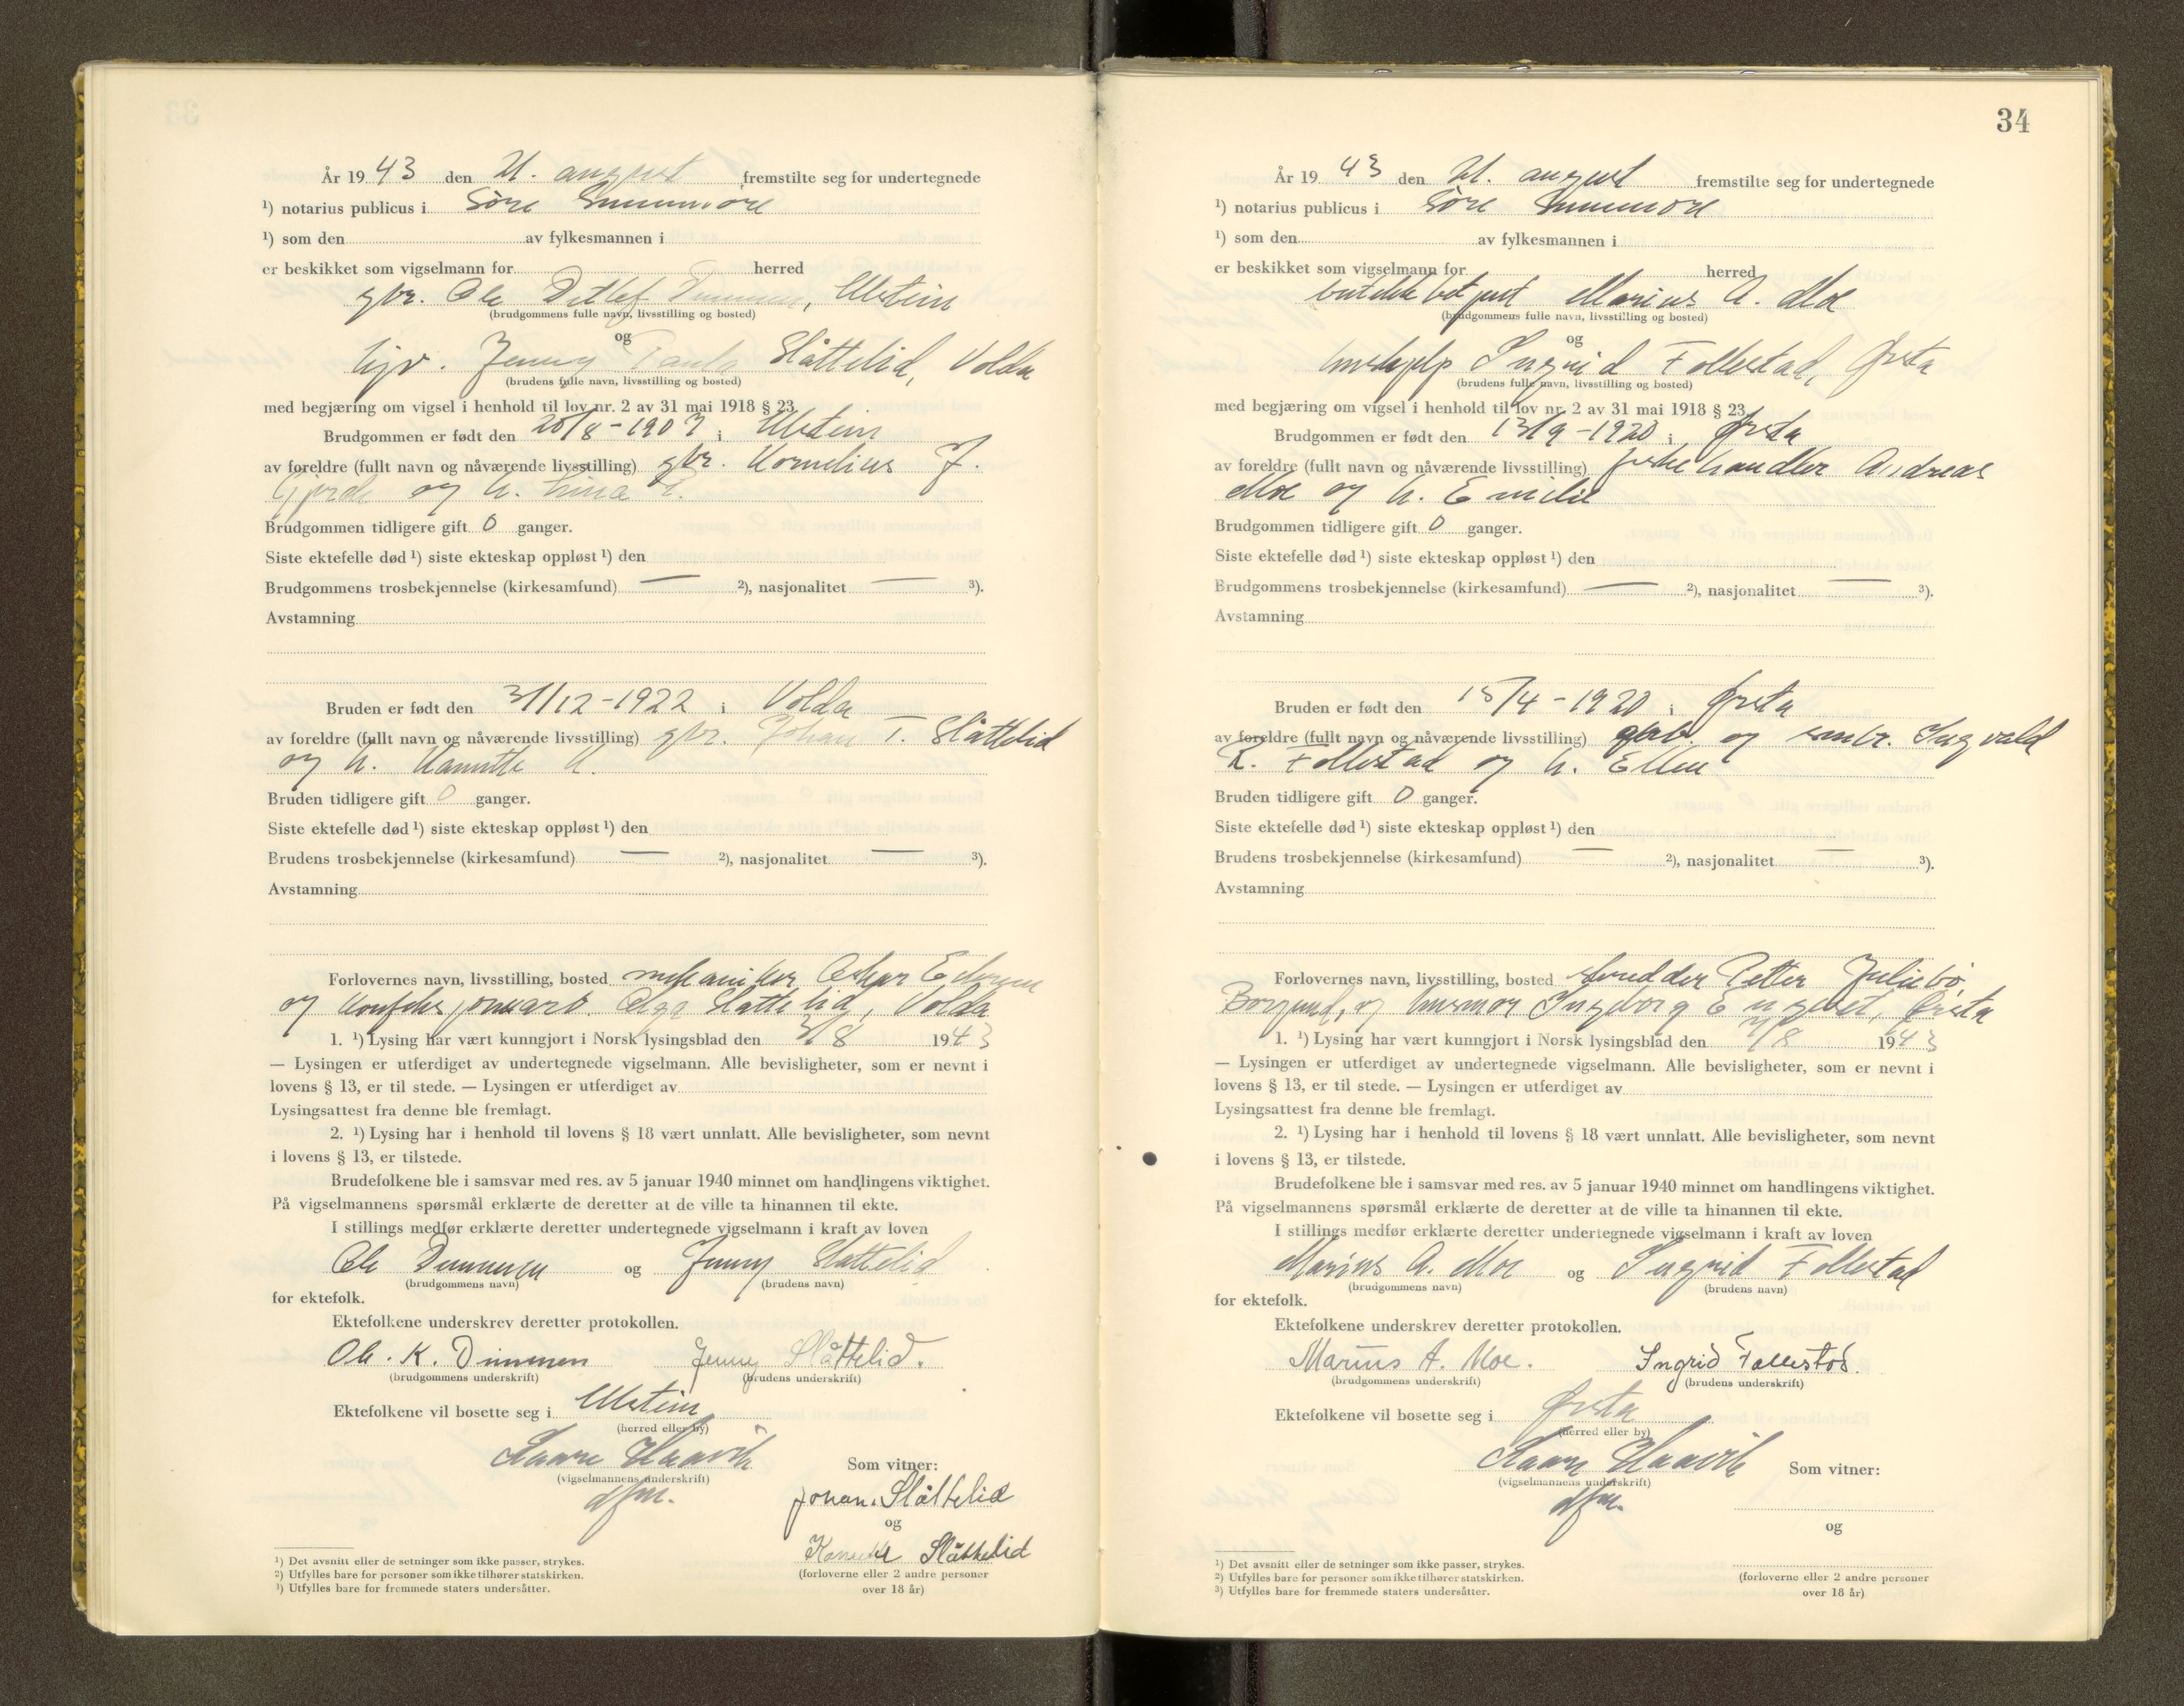 År 1943 den 21. august fremstilte seg for undertegnede
¹) notarius publicus i Søre Sunnmøre
¹) som den av fylkesmannen i
er beskikket som vigselmann for herred
gbr. Ole Detlef Dimmen, Ulstein
(brudgommens fulle navn, livsstilling og bosted)
og
hjv. Jenny Paula Slåttelid, Volda
(brudens fulle navn, livsstilling og bosted)
med begjæring om vigsel i henhold til lov nr. 2 av 31 mai 1918 § 23.
Brudgommen er født den /8-1907 i Ulstein
av foreldre (fullt navn og nåværende livsstilling) gbr. Kornelius J.
Gjerde og h. Lina
Brudgommen tidligere gift 0 ganger.
Siste ektefelle død ¹) siste ekteskap oppløst ¹) den
Brudgommens trosbekjennelse (kirkesamfund) — ²), nasjonalitet — ³).
Avstamning
Bruden er født den 31/12-1922 i Volda
av foreldre (fullt navn og nåværende livsstilling) gbr. Johan T. Slåttelid
og h. Kanutte K.
Bruden tidligere gift 0 ganger.
Siste ektefelle død ¹) siste ekteskap oppløst ¹) den
Brudens trosbekjennelse (kirkesamfund) — ²), nasjonalitet — ³).
Avstamning
Forlovernes navn, livsstilling, bosted mekaniker Oskar
og konfeksjonsarb. Olga Slåttelid, Volda
1. ¹) Lysing har vært kunngjort i Norsk lysingsblad den /8 1943
— Lysingen er utferdiget av undertegnede vigselmann. Alle bevisligheter, som er nevnt i
lovens § 13, er til stede. — Lysingen er utferdiget av
Lysingsattest fra denne ble fremlagt.
2. ¹) Lysing har i henhold til lovens § 18 vært unnlatt. Alle bevisligheter, som nevnt
i lovens § 13, er tilstede.
Brudefolkene ble i samsvar med res. av 5 januar 1940 minnet om handlingens viktighet.
På vigselmannens spørsmål erklærte de deretter at de ville ta hinannen til ekte.
I stillings medfør erklærte deretter undertegnede vigselmann i kraft av loven
Ole Dimmen og Jenny Slåttelid
(brudgommens navn) (brudens navn)
for ektefolk.
Ektefolkene underskrev deretter protokollen.
Ole. K. Dimmen Jenny Slåttelid.
(brudgommens underskrift) (brudens underskrift)
Ektefolkene vil bosette seg i Ulstein
(herred eller by)
Kaare Haavik
(vigselmannens underskrift)
dfm.
Som vitner:
Johan. Slåttelid
og
Kanutte Slåttelid
(forloverne eller 2 andre personer
over 18 år)
¹) Det avsnitt eller de setninger som ikke passer, strykes.
²) Utfylles bare for personer som ikke tilhører statskirken.
³) Utfylles bare for fremmede staters undersåtter.
34
År 1943 den 21. august fremstilte seg for undertegnede
¹) notarius publicus i Søre Sunnmøre
¹) som den av fylkesmannen i
er beskikket som vigselmann for herred
butikkbetjent Marius A. Moe
(brudgommens fulle navn, livsstilling og bosted)
og
hushjelp Ingrid Follestad, Ørsta
(brudens fulle navn, livsstilling og bosted)
med begjæring om vigsel i henhold til lov nr. 2 av 31 mai 1918 § 23.
Brudgommen er født den 13/9-1920 i Ørsta
av foreldre (fullt navn og nåværende livsstilling) fiskehandler Andreas
Moe og h. Emilie
Brudgommen tidligere gift 0 ganger.
Siste ektefelle død ¹) siste ekteskap oppløst ¹) den
Brudgommens trosbekjennelse (kirkesamfund) — ²), nasjonalitet — ³).
Avstamning
Bruden er født den 15/4-1920 i Ørsta
av foreldre (fullt navn og nåværende livsstilling) og Ingvald
R. Follestad og h. Ellen
Bruden tidligere gift 0 ganger.
Siste ektefelle død ¹) siste ekteskap oppløst ¹) den
Brudens trosbekjennelse (kirkesamfund) — ²), nasjonalitet — ³).
Avstamning
Forlovernes navn, livsstilling, bosted skredder Petter Juliebø,
Borgund, og husmor Ingeborg Engeset, Ørsta
1. ¹) Lysing har vært kunngjort i Norsk lysingsblad den /8 1943
— Lysingen er utferdiget av undertegnede vigselmann. Alle bevisligheter, som er nevnt i
lovens § 13, er til stede. — Lysingen er utferdiget av
Lysingsattest fra denne ble fremlagt.
2. ¹) Lysing har i henhold til lovens § 18 vært unnlatt. Alle bevisligheter, som nevnt
i lovens § 13, er tilstede.
Brudefolkene ble i samsvar med res. av 5 januar 1940 minnet om handlingens viktighet.
På vigselmannens spørsmål erklærte de deretter at de ville ta hinannen til ekte.
I stillings medfør erklærte deretter undertegnede vigselmann i kraft av loven
Marius A. Moe og Ingrid Follestad
(brudgommens navn) (brudens navn)
for ektefolk.
Ektefolkene underskrev deretter protokollen.
Marius A. Moe. Ingrid Follestad.
(brudgommens underskrift) (brudens underskrift)
Ektefolkene vil bosette seg i Ørsta
(herred eller by)
Kaare Haavik
(vigselmannens underskrift)
dfm.
Som vitner:
og
(forloverne eller 2 andre personer
over 18 år)
¹) Det avsnitt eller de setninger som ikke passer, strykes.
²) Utfylles bare for personer som ikke tilhører statskirken.
³) Utfylles bare for fremmede staters undersåtter.